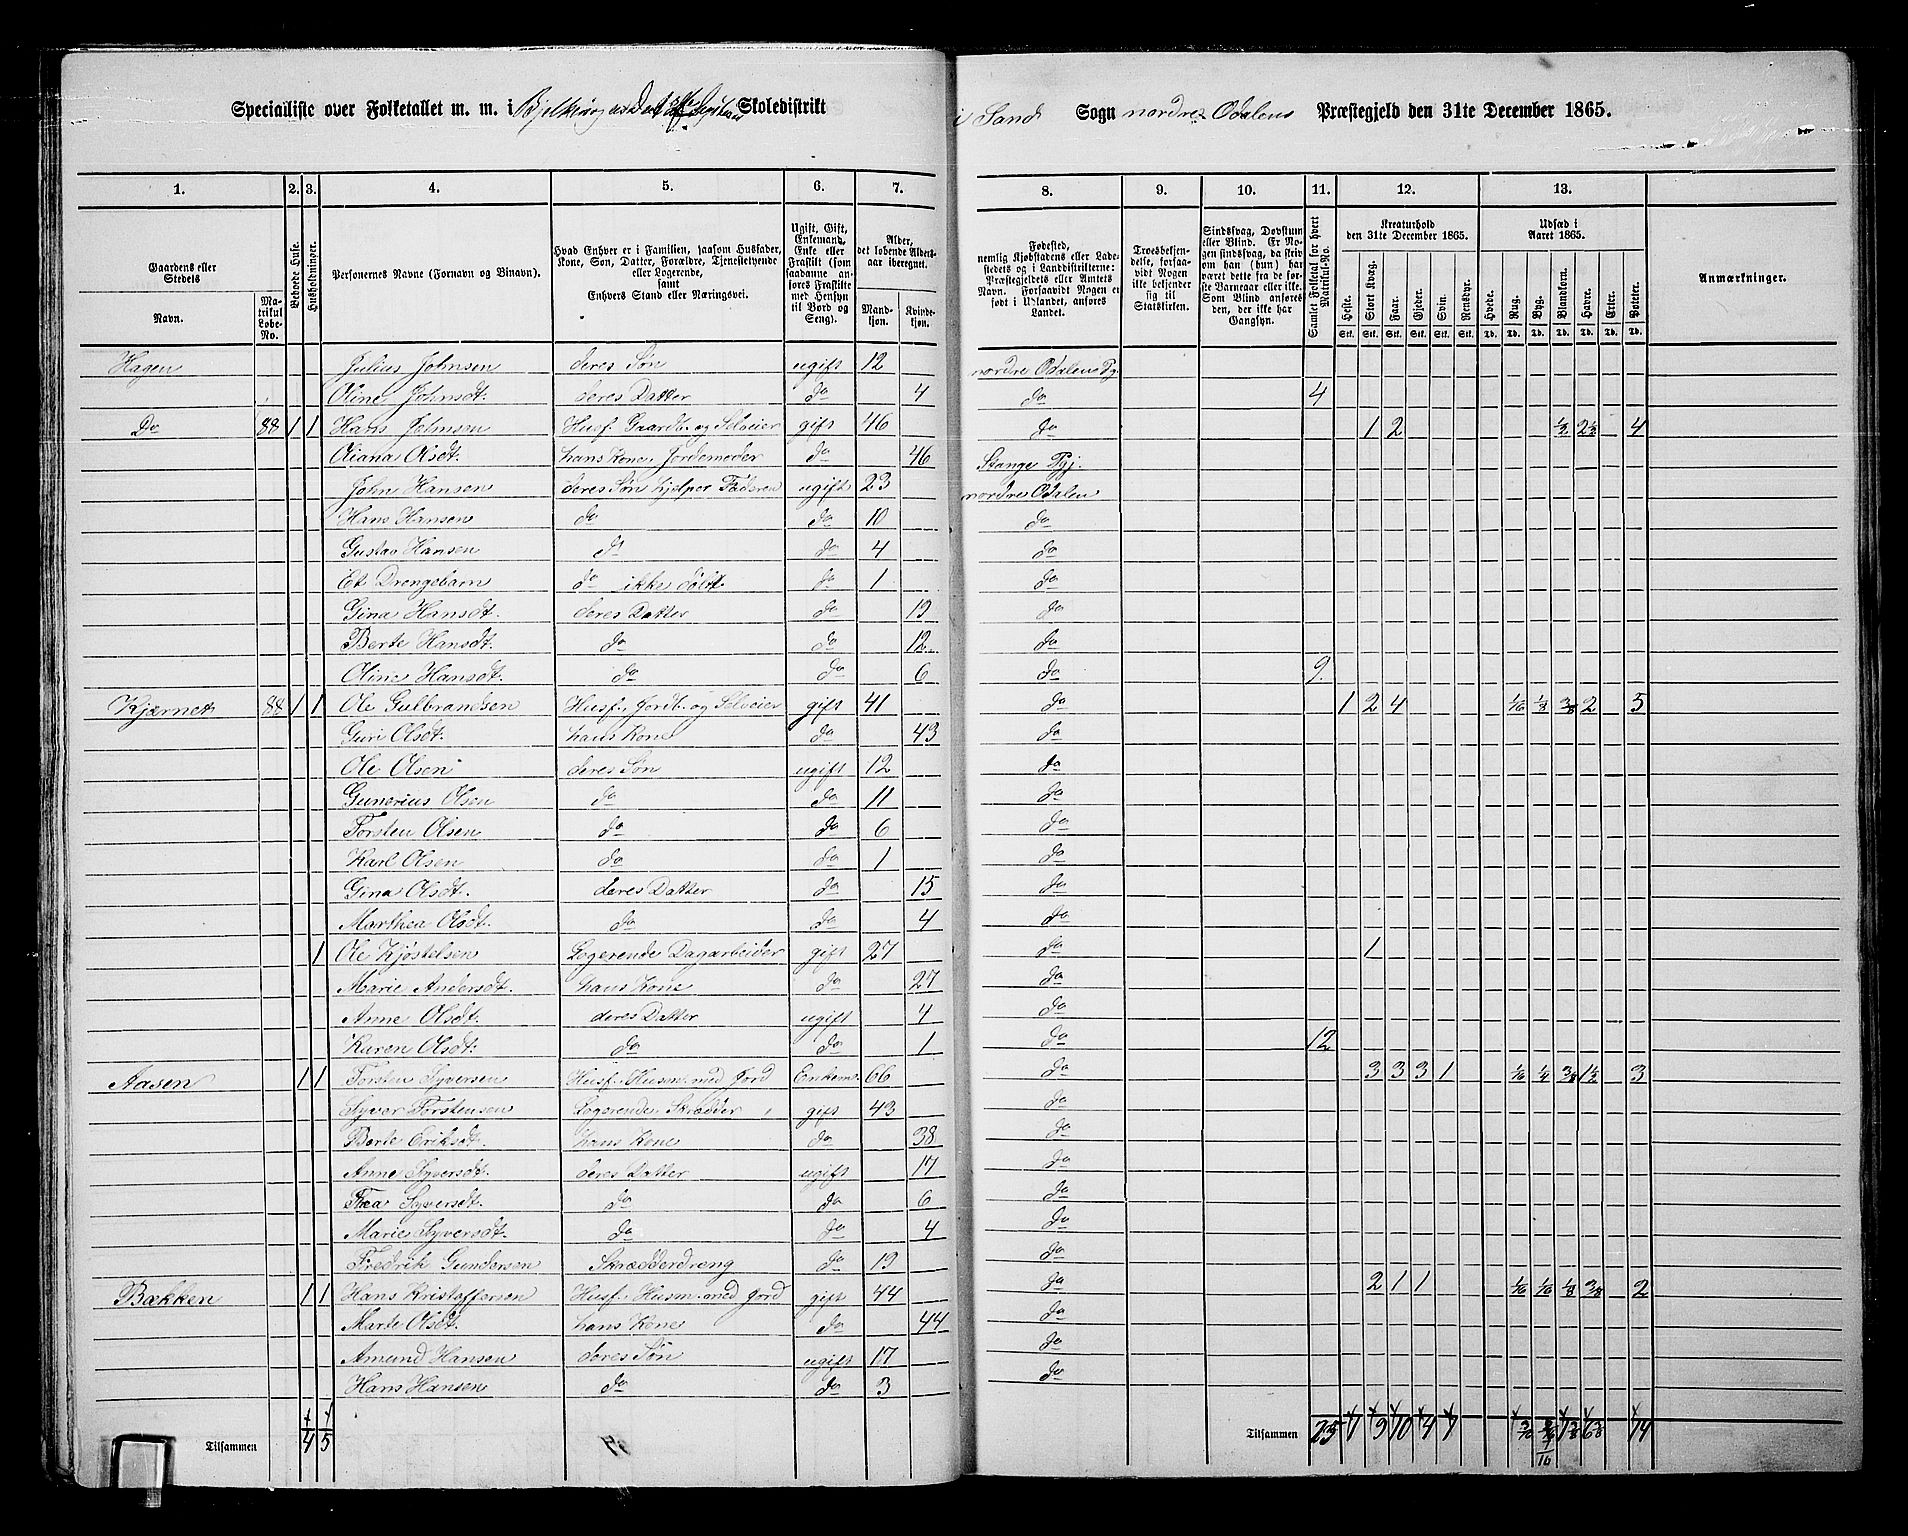 Specialliste over Folketallet m. m. i Skoledistrikt i Sand Sogn nordre Odalens Præstegjeld den 31te December 1865.
1. 2. 3. 4. 5. 6. 7. 8. 9. 10. 11. 12. 13.
Gaardens eller Stedets Navn.
Matrikul Løbe-No.
Beboede Huse.
Husholdninger.
Personernes Navne (Fornavn og Binavn).
Hvad Enhver er i Familien, saasom Husfader, Kone, Søn, Datter, Forældre, Tjenestetyende eller Logerende, samt Enhvers Stand eller Næringsvei.
Ugift, Gift, Enkemand, Enke eller Fraskilt (som saadanne ansøres Fraskilte med Hensyn til Bord og Seng).
Alder, det løbende Aldersaar iberegnet.
Mandkjøn. Kvindekjøn.
Fødested, nemlig Kjøbstadens eller Ladestedets og i Landdistrikterne: Præstegjeldets eller Amtets Navn. Forsaavidt Nogen er født i Udlandet, anføres Landet.
Troesbekjendelse, forsaavidt Nogen ikke bekjender sig til Statskirken.
Sindssvag, Døvstum eller Blind. Er Nogen sindssvag, da skrives om han (hun) har været dette fra de første Barneaar eller ikke. Som Blind anføres den, der ikke har Gangsyn.
Samlet Folketal for hvert Matrikul-No.
Kreaturhold den 31te December 1865.
Heste. Stort Kvæg. Faar. Gjeder. Svin. Rensdyr.
Udsæd i Aaret 1865.
Hvede. Rug. Byg. Blandkorn. Havre. Erter. Poteter.
Anmærkninger.
Hagen Julius Johnsen deres Søn ugift 12 nordre Odalens Pg.
Oline Johnsdt. deres Datter do 4 do 4
Do 88 1 1 Hans Johnsen Husf. Gaardb. og Selveier gift 46 do 1 2 1/2 2 1/2 4
Oliana Olsdt. hans Kone, Jordemoder do 46 Stange Pgj.
John Hansen deres Søn hjelper Faderen ugift 23 nordre Odalen
Hans Hansen do do 10 do
Gustav Hansen do do 4 do
Et Drengebarn do ikke døbt do 1 do
Gina Hansdt. deres Datter do 19 do
Berte Hansdt. do do 12 do
Oline Hansdt. do do 6 do 9
Kjærnet 88 1 1 Ole Gulbrandsen Husf. Jordb. og Selveier gift 41 do 1 2 4 1/16 1/8 3/8 2 5
Guri Olsdt. hans Kone do 43 do
Ole Olsen deres Søn ugift 12 do
Gunerius Olsen do do 11 do
Torsten Olsen do do 6 do
Karl Olsen do do 1 do
Gina Olsdt. deres Datter do 15 do
Marthea Olsdt. do do 4 do
1 Ole Kjøstelsen Logerende Dagarbeider gift 27 do 1
Marie Andersdt. hans Kone do 27 do
Anne Olsdt. deres Datter ugift 4 do
Karen Olsdt. do do 1 do 12
Aasen 1 1 Torsten Syversen Husf. Husm. med Jord Enkem. 66 do 3 3 3 1 1/16 1/4 3/8 1 1/2 3
Syver Torstensen Logerende, Skrædder gift 43 do
Berte Eriksdt. hans Kone do 38 do
Anne Syversdt. deres Datter ugift 17 do
Thea Syversdt. do do 6 do
Marie Syversdt. do do 4 do
Fredrik Gundersen Skrædderdreng do 19 do
Bækken 1 1 Hans Kristoffersen Husf. Husm. med Jord gift 44 do 2 1 1 1/16 1/16 1/8 3/8 2
Marte Olsdt. hans Kone do 44 do
Amund Hansen deres Søn ugift 17 do
Hans Hansen do do 3 do
Tilsammen 4 5 Tilsammen 25 1 9 10 4 1 14